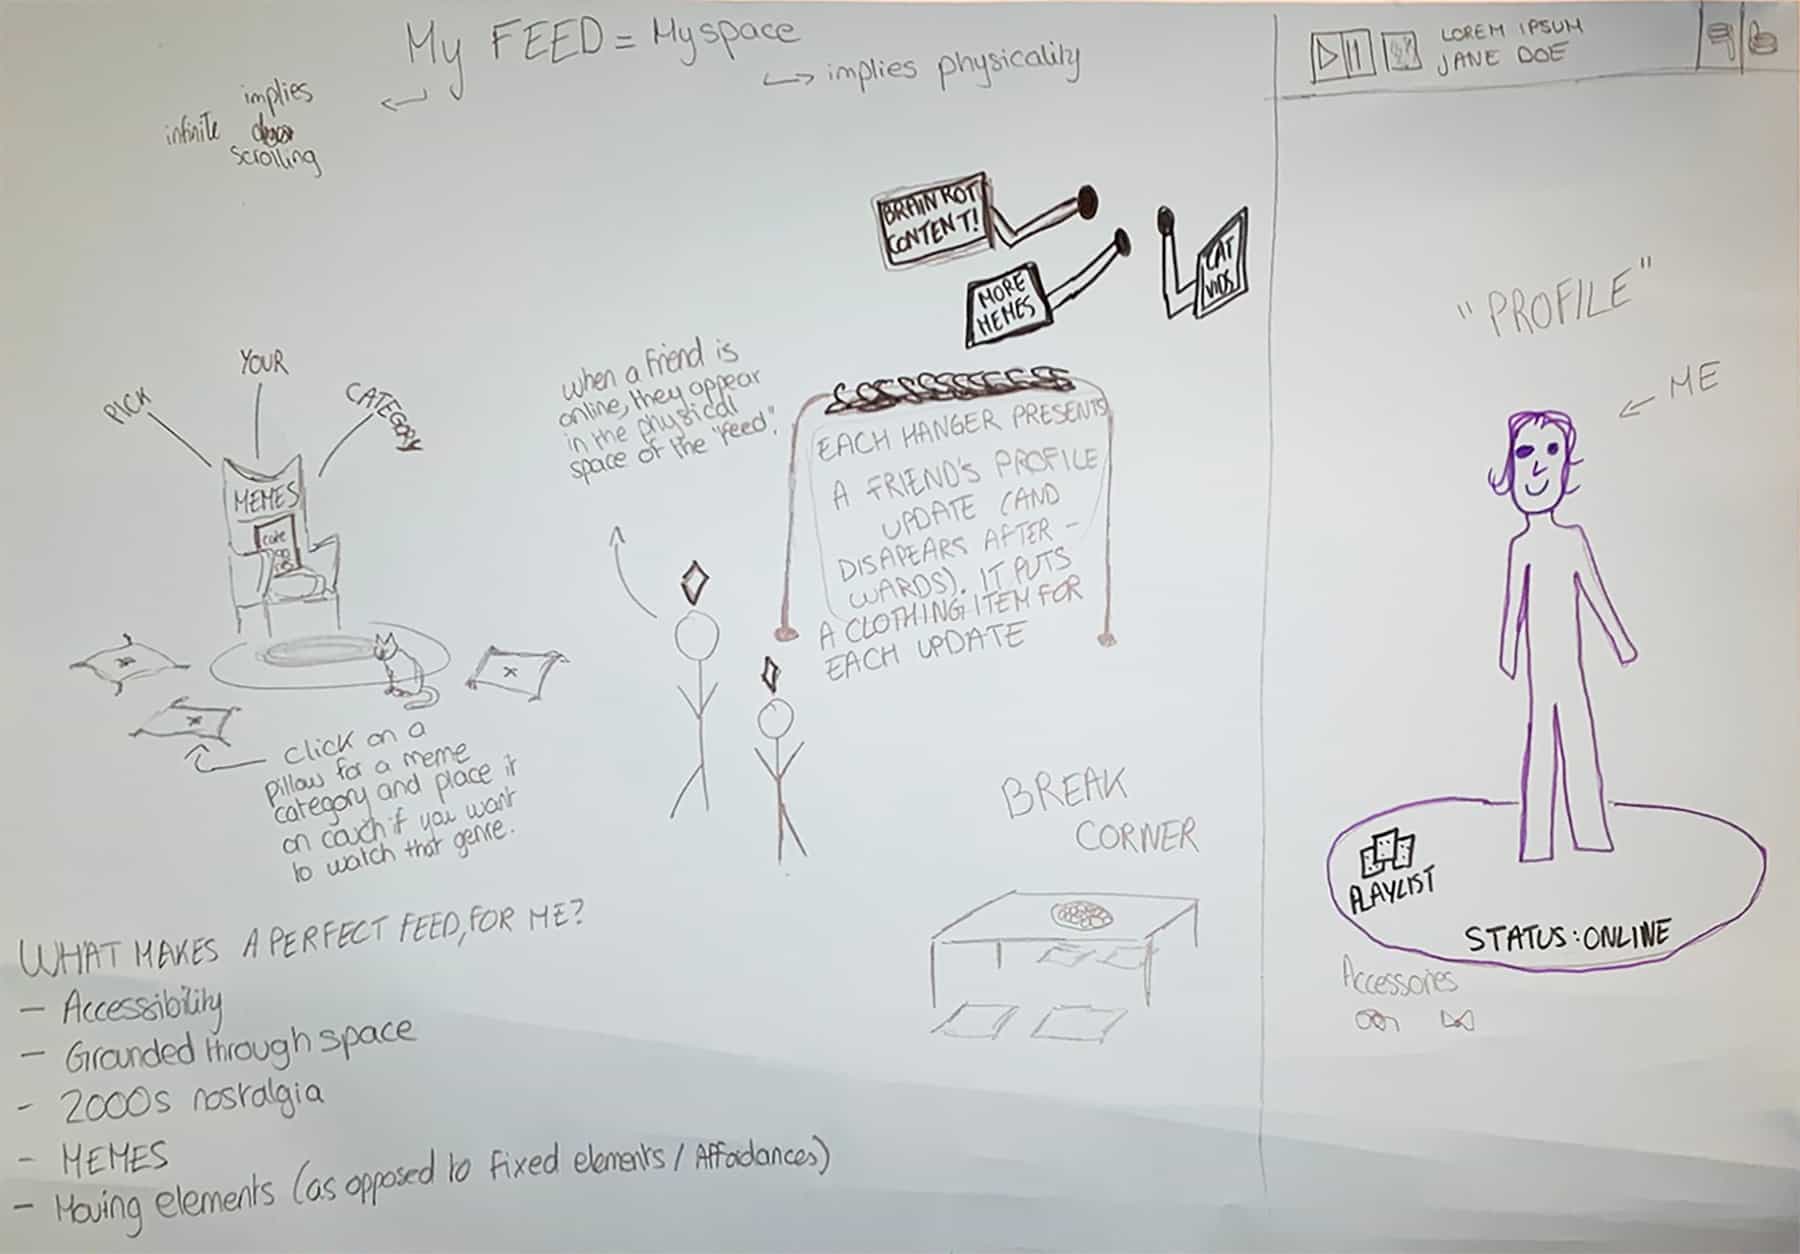 My FEED = Myspace
implies physicality
implies
infinite
scrolling
BRAIN ROT
CONTENT!
MORE
MEMES
CAT
VIDS
PICK
YOUR
CATEGORY
MEMES
when a friend is
online, they appear
in the physical
space of the "feed".
EACH HANGER PRESENTS
A FRIEND'S PROFILE
UPDATE (AND
DISAPEARS AFTER -
WARDS). IT PUTS
A CLOTHING ITEM FOR
EACH UPDATE
Click on a
pillow for a meme
category and place it
on couch if you want
to watch that genre.
BREAK
CORNER
WHAT MAKES A PERFECT FEED, FOR ME?
- Accessibility
- Grounded through space
- 2000s nostalgia
- MEMES
- Moving elements (as opposed to fixed elements / Affordances)
LOREM IPSUM
JANE DOE
"PROFILE"
ME
PLAYLIST
STATUS: ONLINE
Accessories